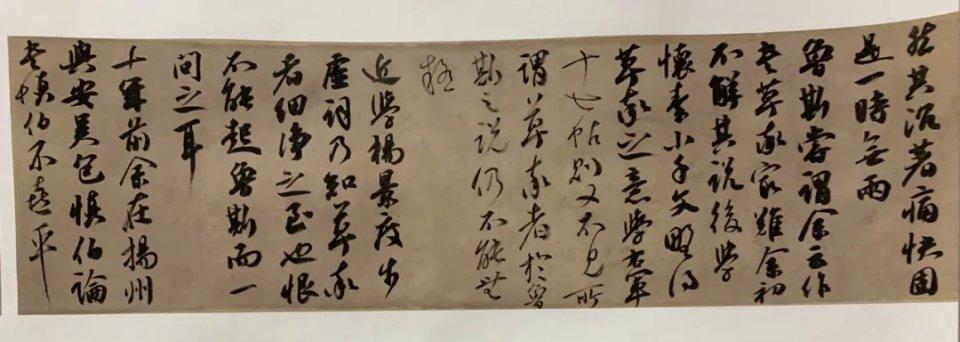 然其沉著痛快固
是一時無兩
魯斯嘗謂余云作
書草家難余初
不解其說後學
懷素小千文略得
草之意學右軍
十七帖則又不見所
謂草者於魯
斯之說仍不能無
疑
近學楊景度步
虛詞乃知草
者細之至也恨
不能起魯斯而一
問之耳
十年前余在揚州
與安吳包慎伯論
書慎伯不喜平